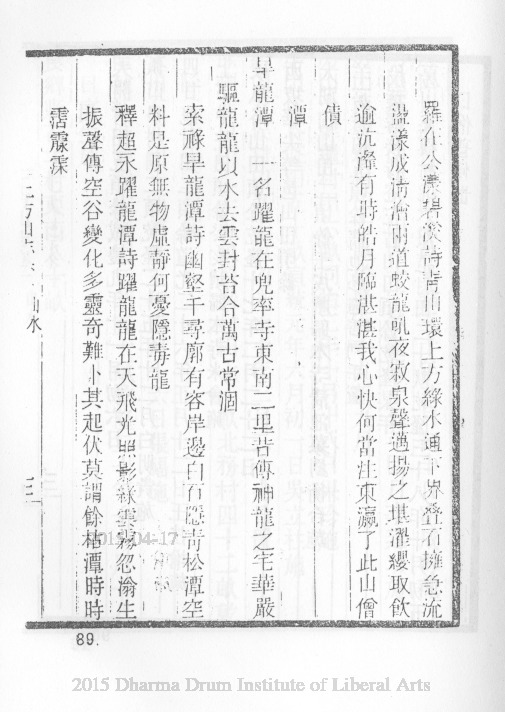 羅在公濛碧潑詩青山環上方綠水通下界叠石擁急流
瀲漾成淸澮雨道蛟龍吼夜寂泉聲邁揚之堪濯纓取飮
逾沆瀣有時皓月臨湛湛我心快何當注東瀛了此山僧
債
潭
旱龍潭 一名躍龍在兜率寺東南二里昔傳神龍之宅華嚴
驅龍龍以水去雲封苔合萬古常涸
索祿旱龍潭詩幽壑千尋廓有容岸邊白石隱靑松潭空
料是原無物虛靜何憂隱毒龍
釋超永躍龍潭詩躍龍龍在天飛光照影綠雲霧忽滃生
振聲傳空谷變化多靈奇難卜其起伏莫謂餘枯潭時時
霑霡霂
上方山志 山水
2015-04-17
89.
2015 Dharma Drum Institute of Liberal Arts